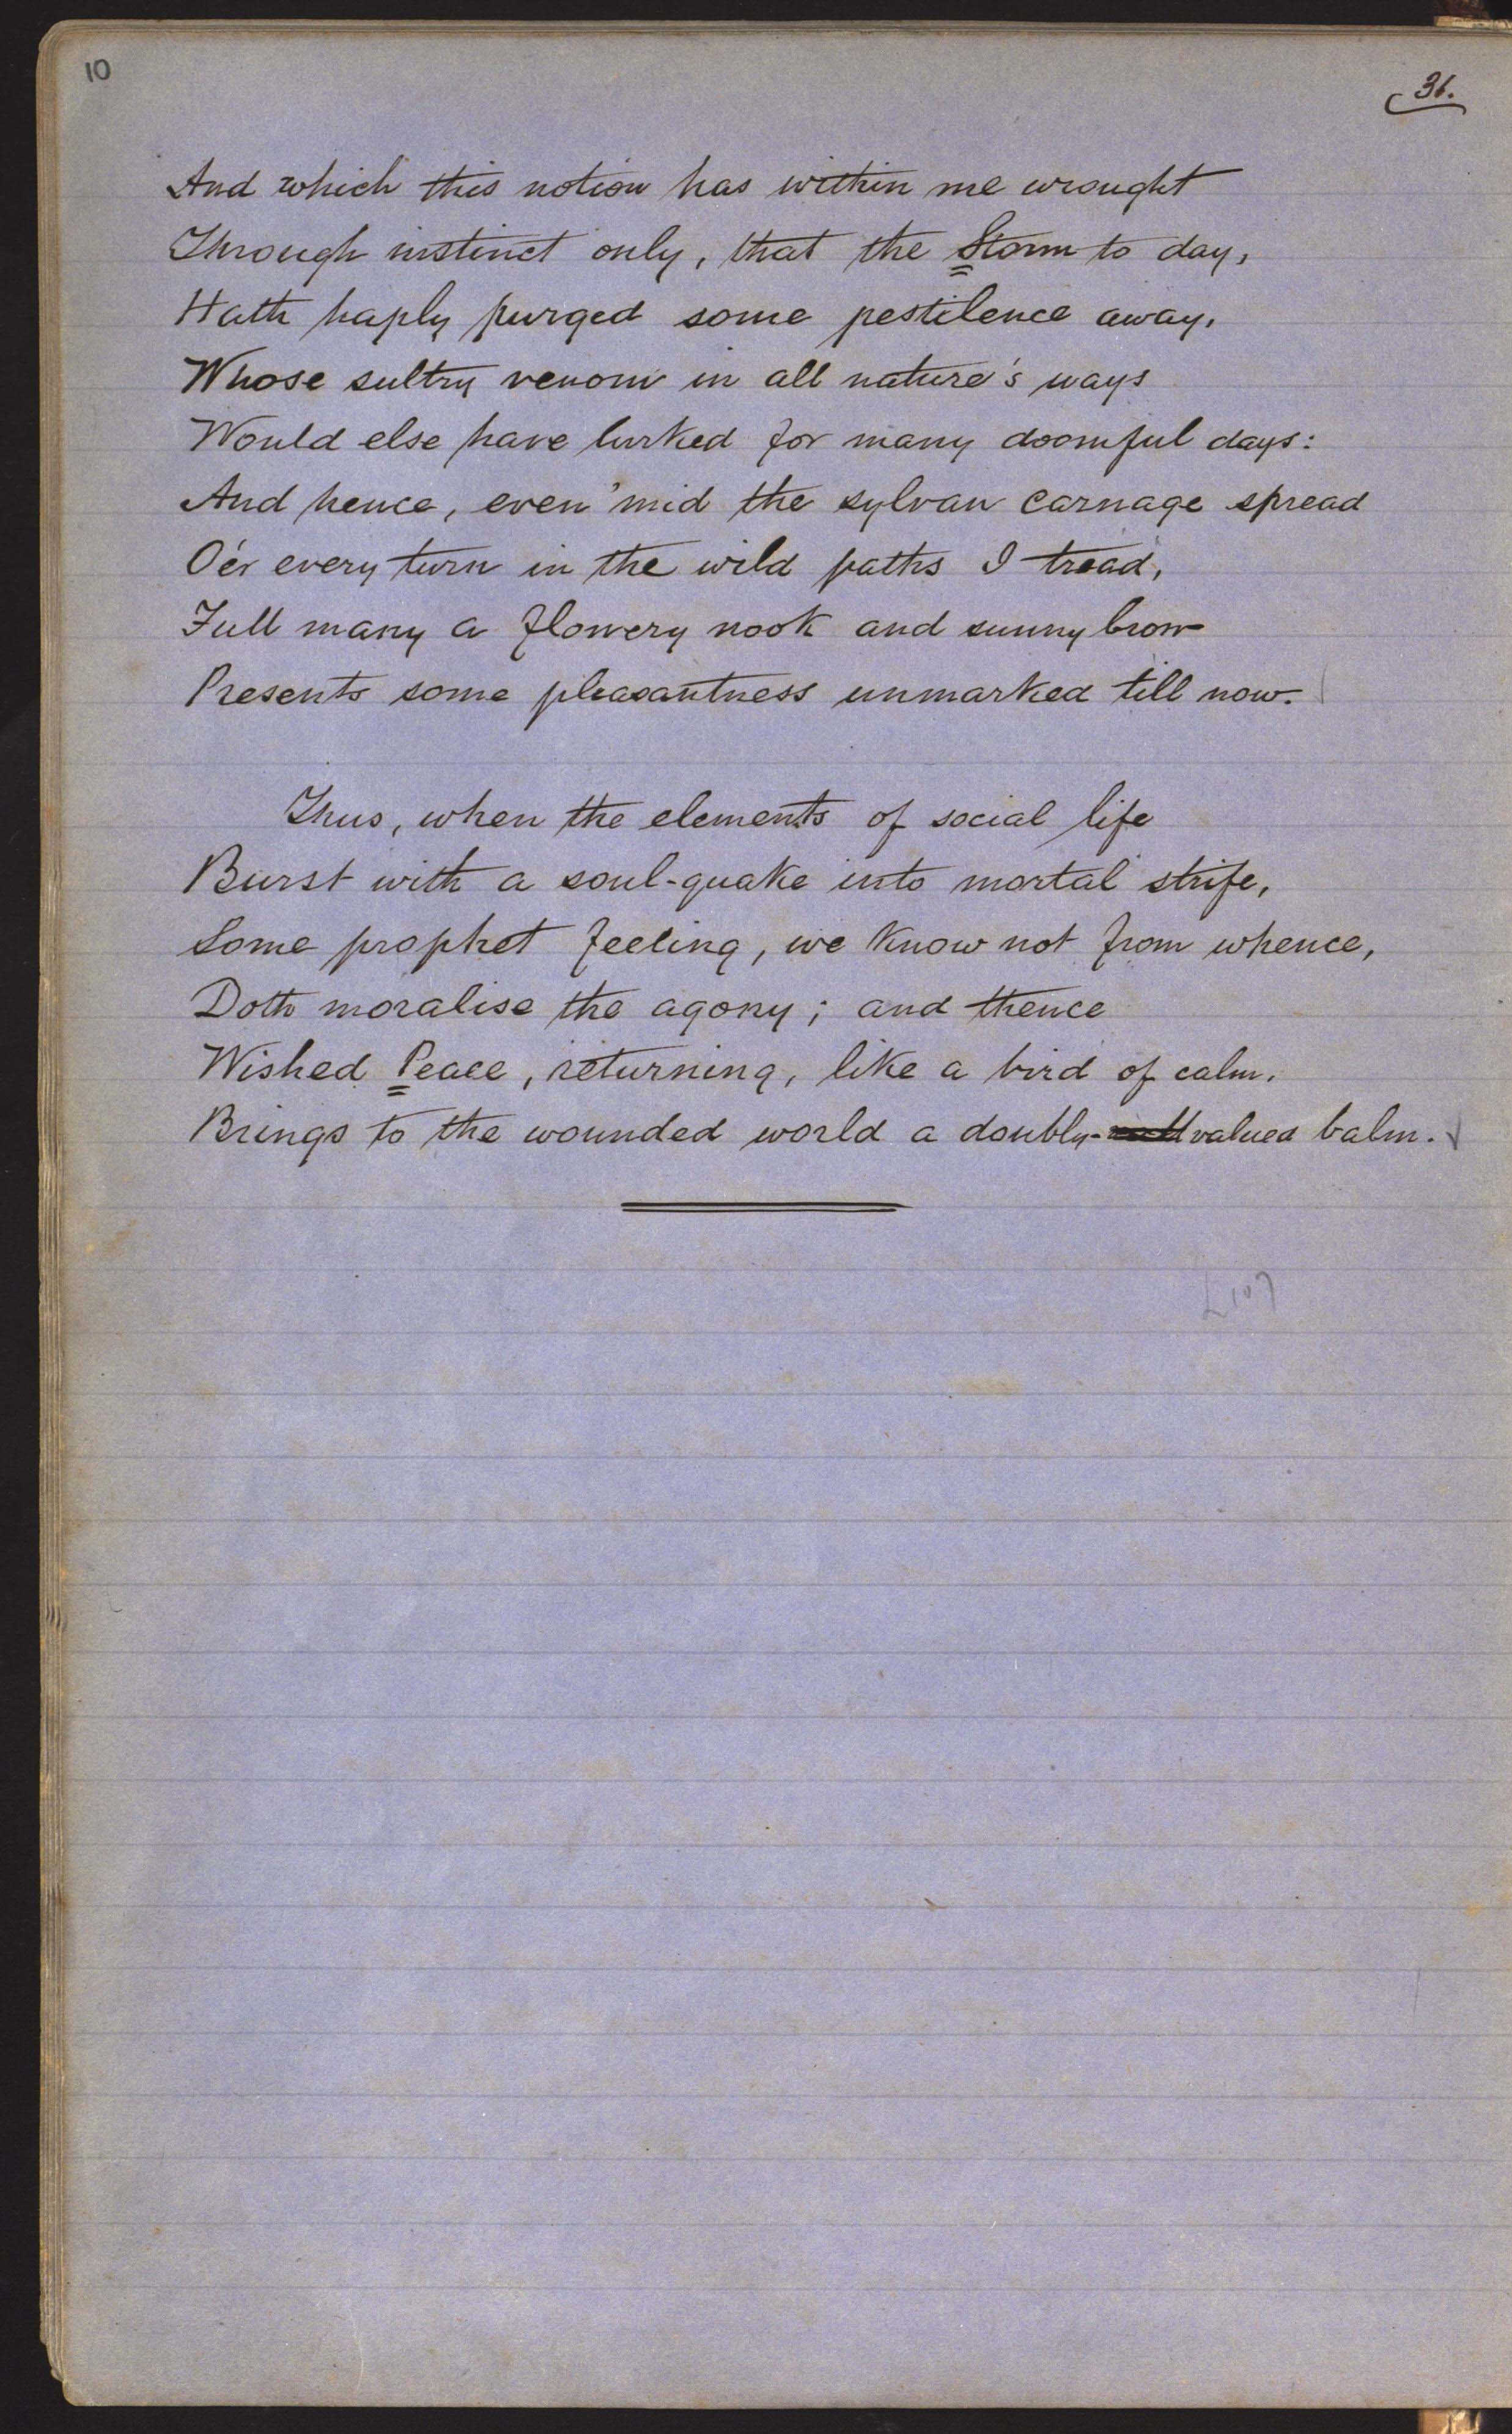 10
36.
And which this notion has within me wrought
Through instinct only, that the Storm to day,
Hath haply purged some pestilence away,
Whose sultry venom in all nature's ways
Would else have lurked for many doomful days:
And hence, even 'mid the sylvan carnage spread
O'er every turn in the wild paths I tread,
Full many a flowery nook and sunny brow
Presents some pleasantness unmarked till now.
Thus, when the elements of social life
Burst with a soul-quake into mortal strife,
Some prophet feeling, we know not from whence,
Doth moralise the agony; and thence
Wished Peace, returning, like a bird of calm,
Brings to the wounded world a doubly-valued balm.